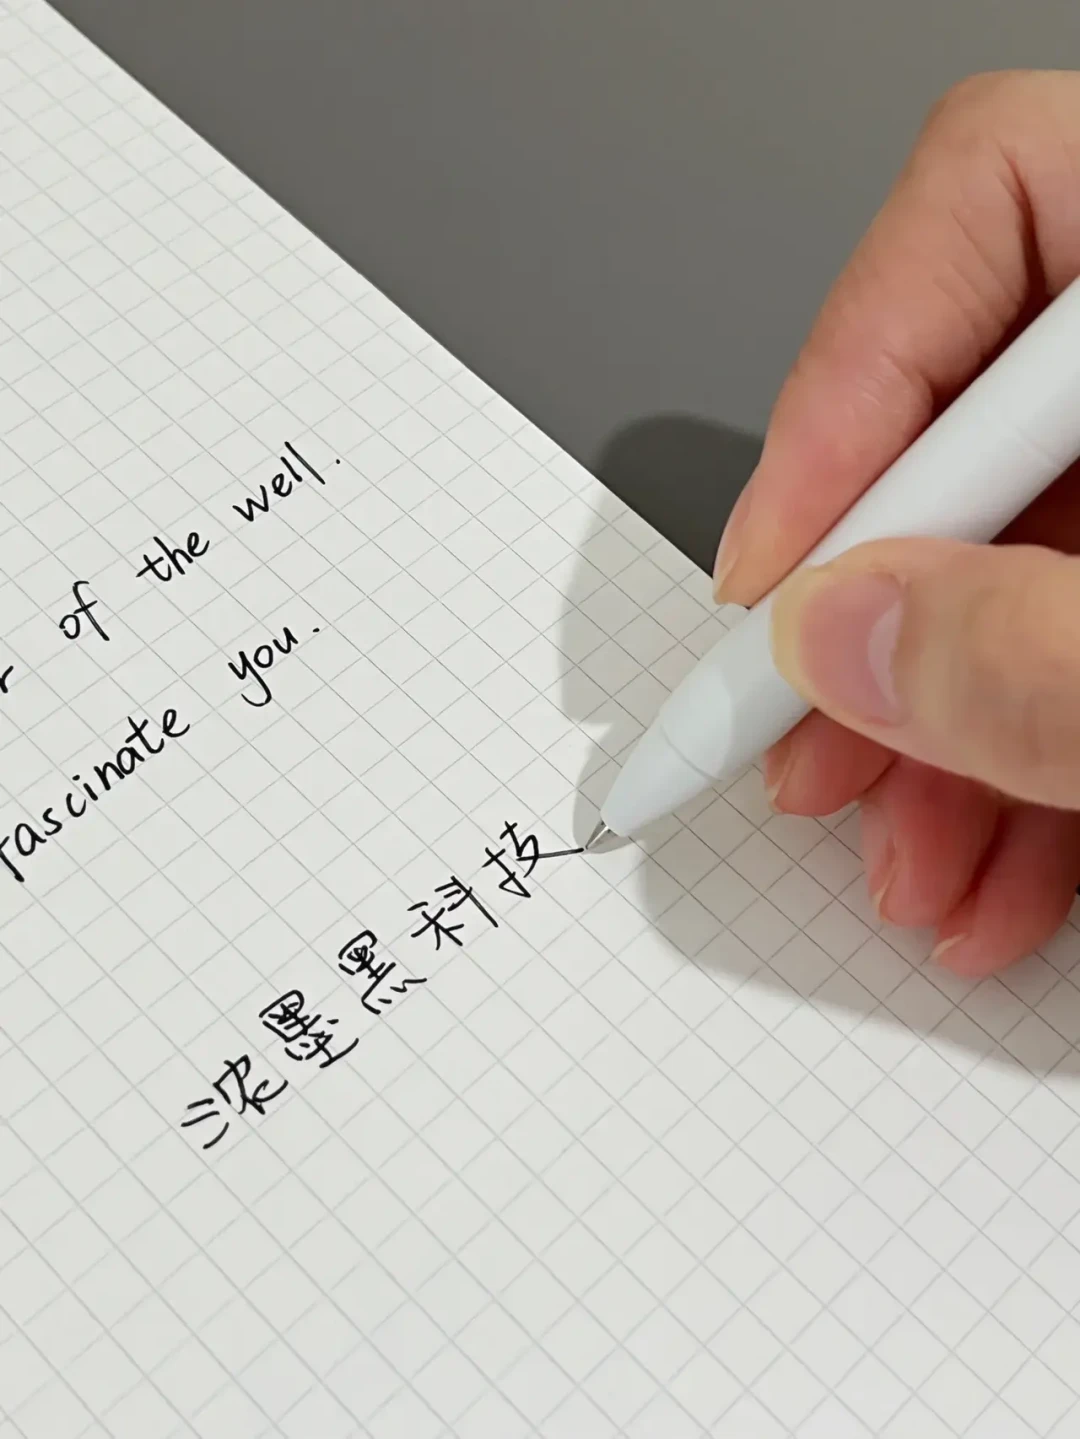 of the well.
fascinate you.
浓墨黑科技